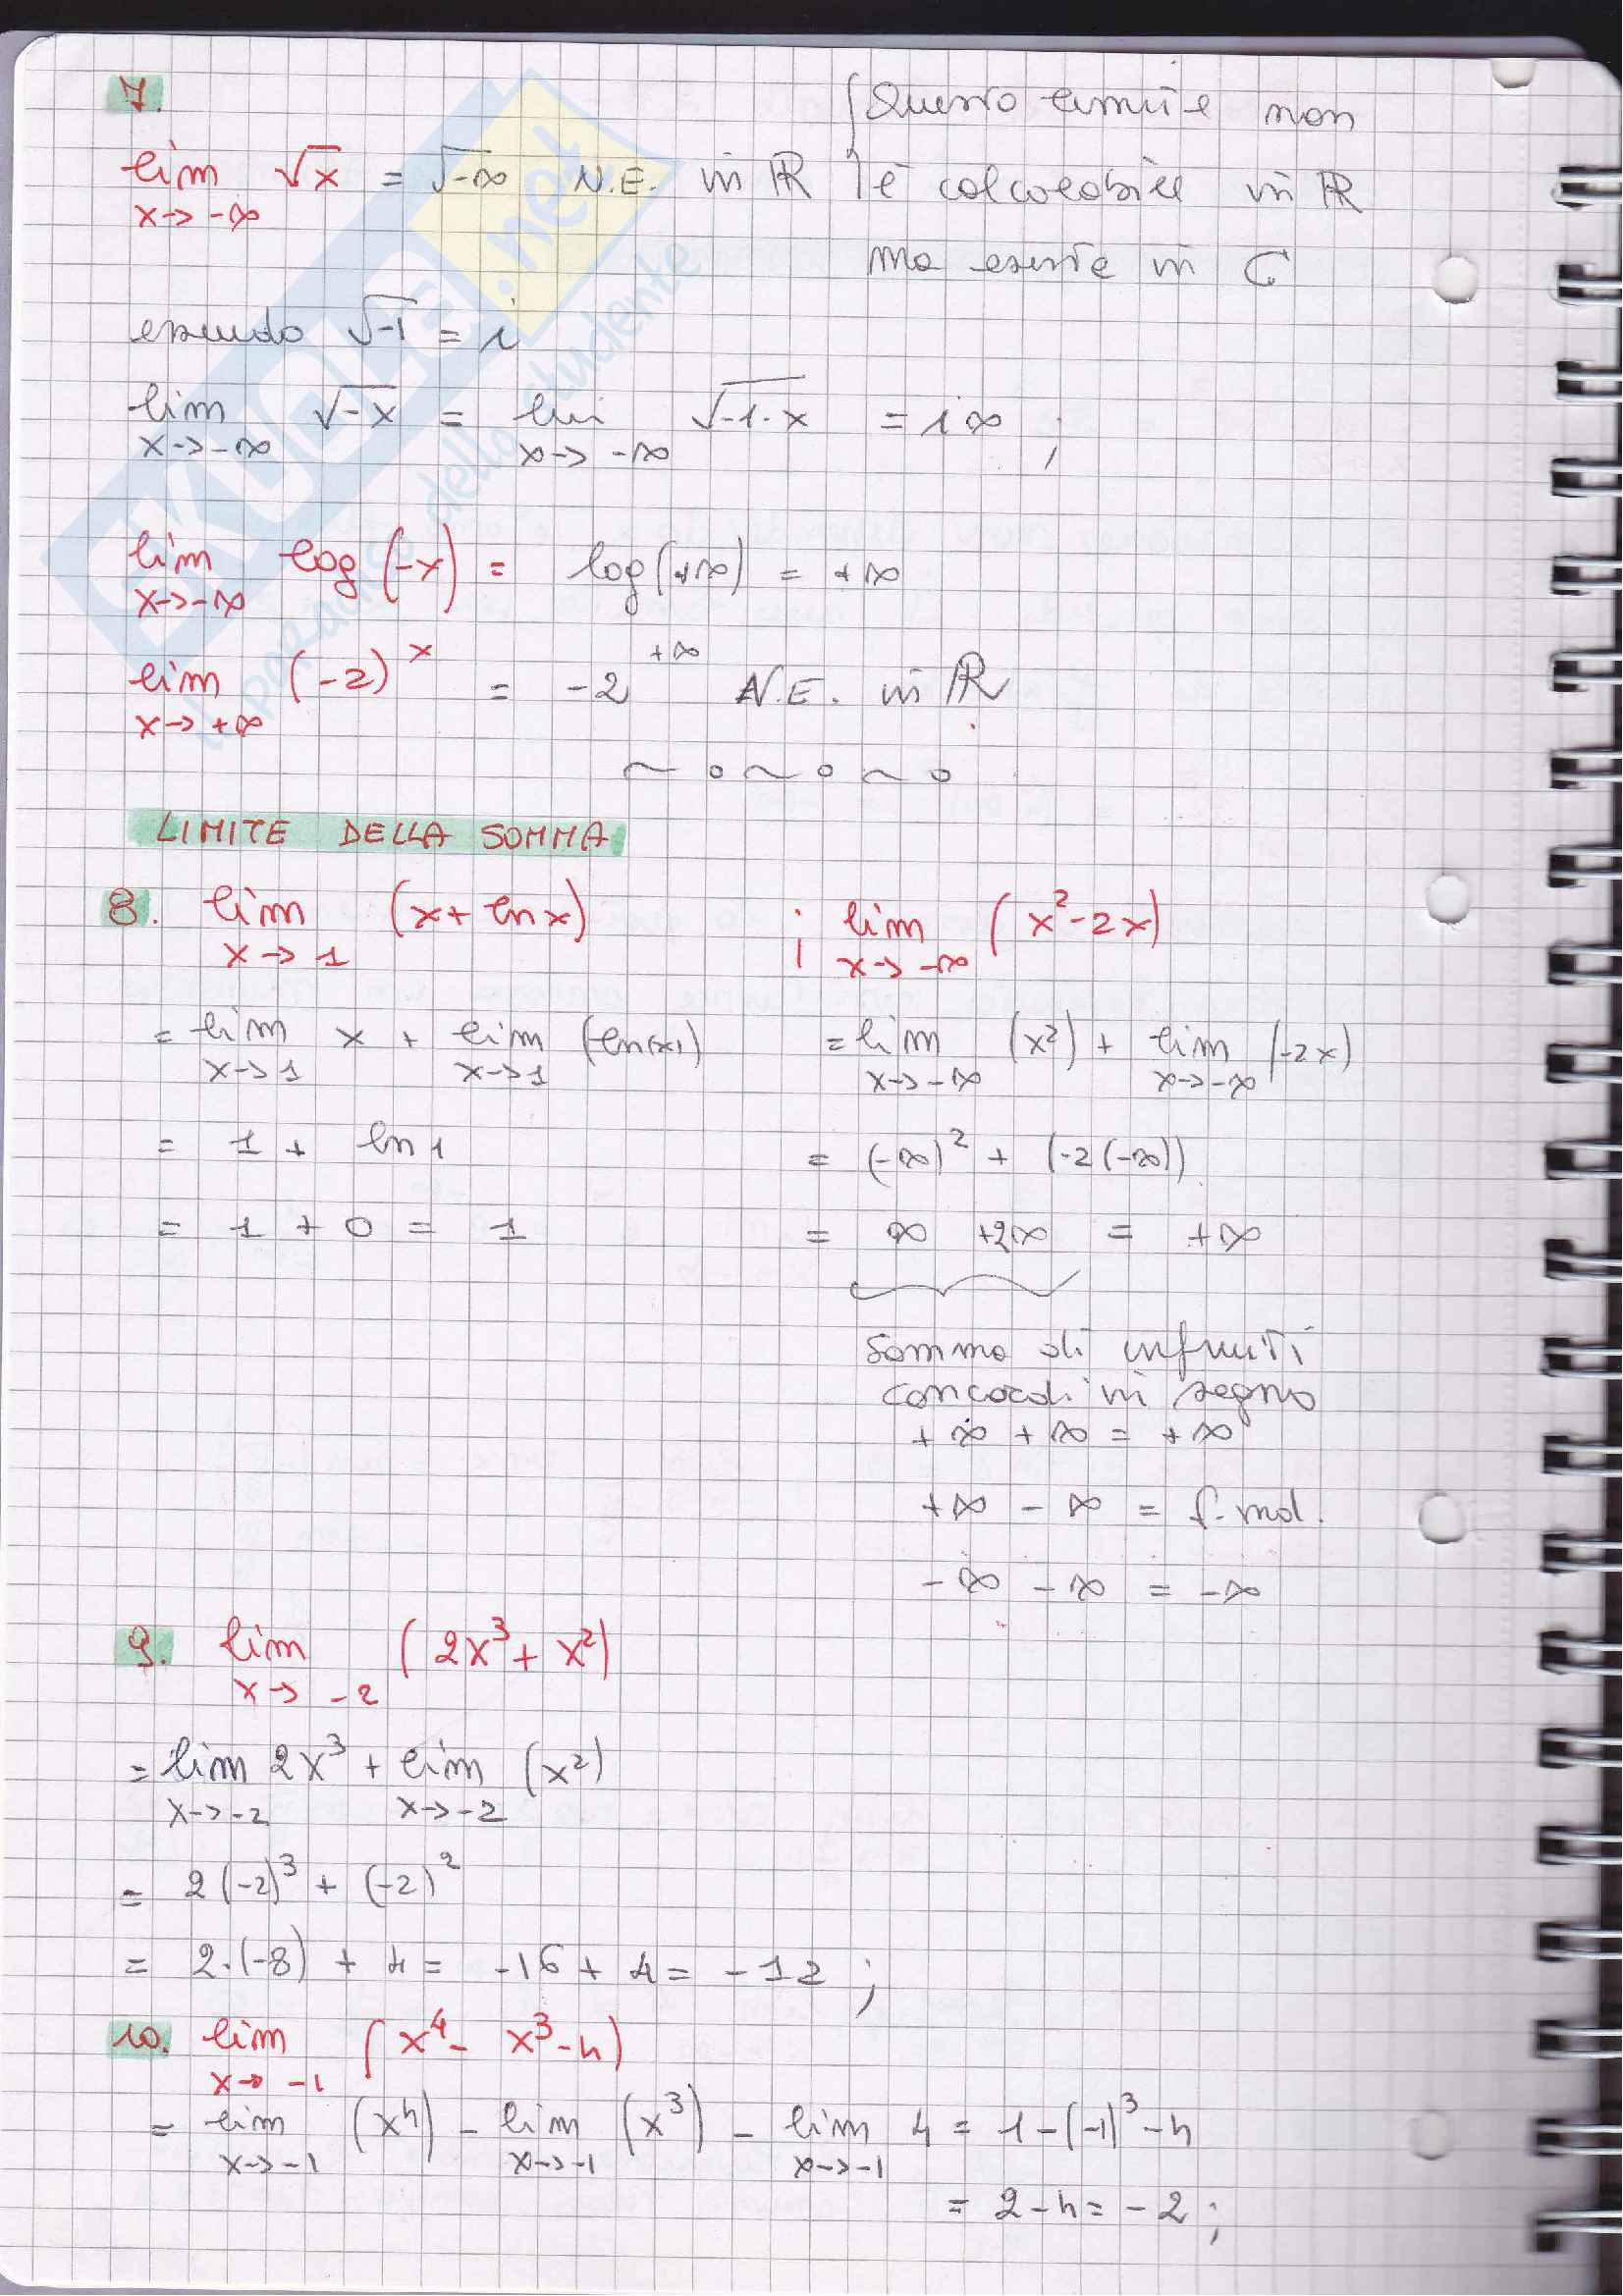 7.
lim x→-∞ √x = √-∞ N.E. in ℝ { Questo limite non
è calcolabile in ℝ
ma esiste in C
essendo √-1 = i
lim x→-∞ √-x = lim x→-∞ √-1·x = i∞ ;
lim x→-∞ log(-x) = log(+∞) = +∞
lim x→+∞ (-2)^x = -2^+∞ N.E. in ℝ
~ o ~ o ~ o
LIMITE DELLA SOMMA
8. lim x→1 (x + ln x) ; lim x→-∞ (x² - 2x)
= lim x→1 x + lim x→1 (ln(x)) = lim x→-∞ (x²) + lim x→-∞ (-2x)
= 1 + ln 1 = (-∞)² + (-2(-∞))
= 1 + 0 = 1 = ∞ +2∞ = +∞
Somma di infiniti
concordi in segno
+∞ + ∞ = +∞
+∞ - ∞ = f. ind.
-∞ - ∞ = -∞
9. lim x→-2 (2x³ + x²)
= lim x→-2 2x³ + lim x→-2 (x²)
= 2(-2)³ + (-2)²
= 2·(-8) + 4 = -16 + 4 = -12 ;
10. lim x→-1 (x⁴ - x³ - 4)
= lim x→-1 (x⁴) - lim x→-1 (x³) - lim x→-1 4 = 1 - (-1)³ - 4
= 2 - 4 = -2 ;
SKUOLA.net
dello studente